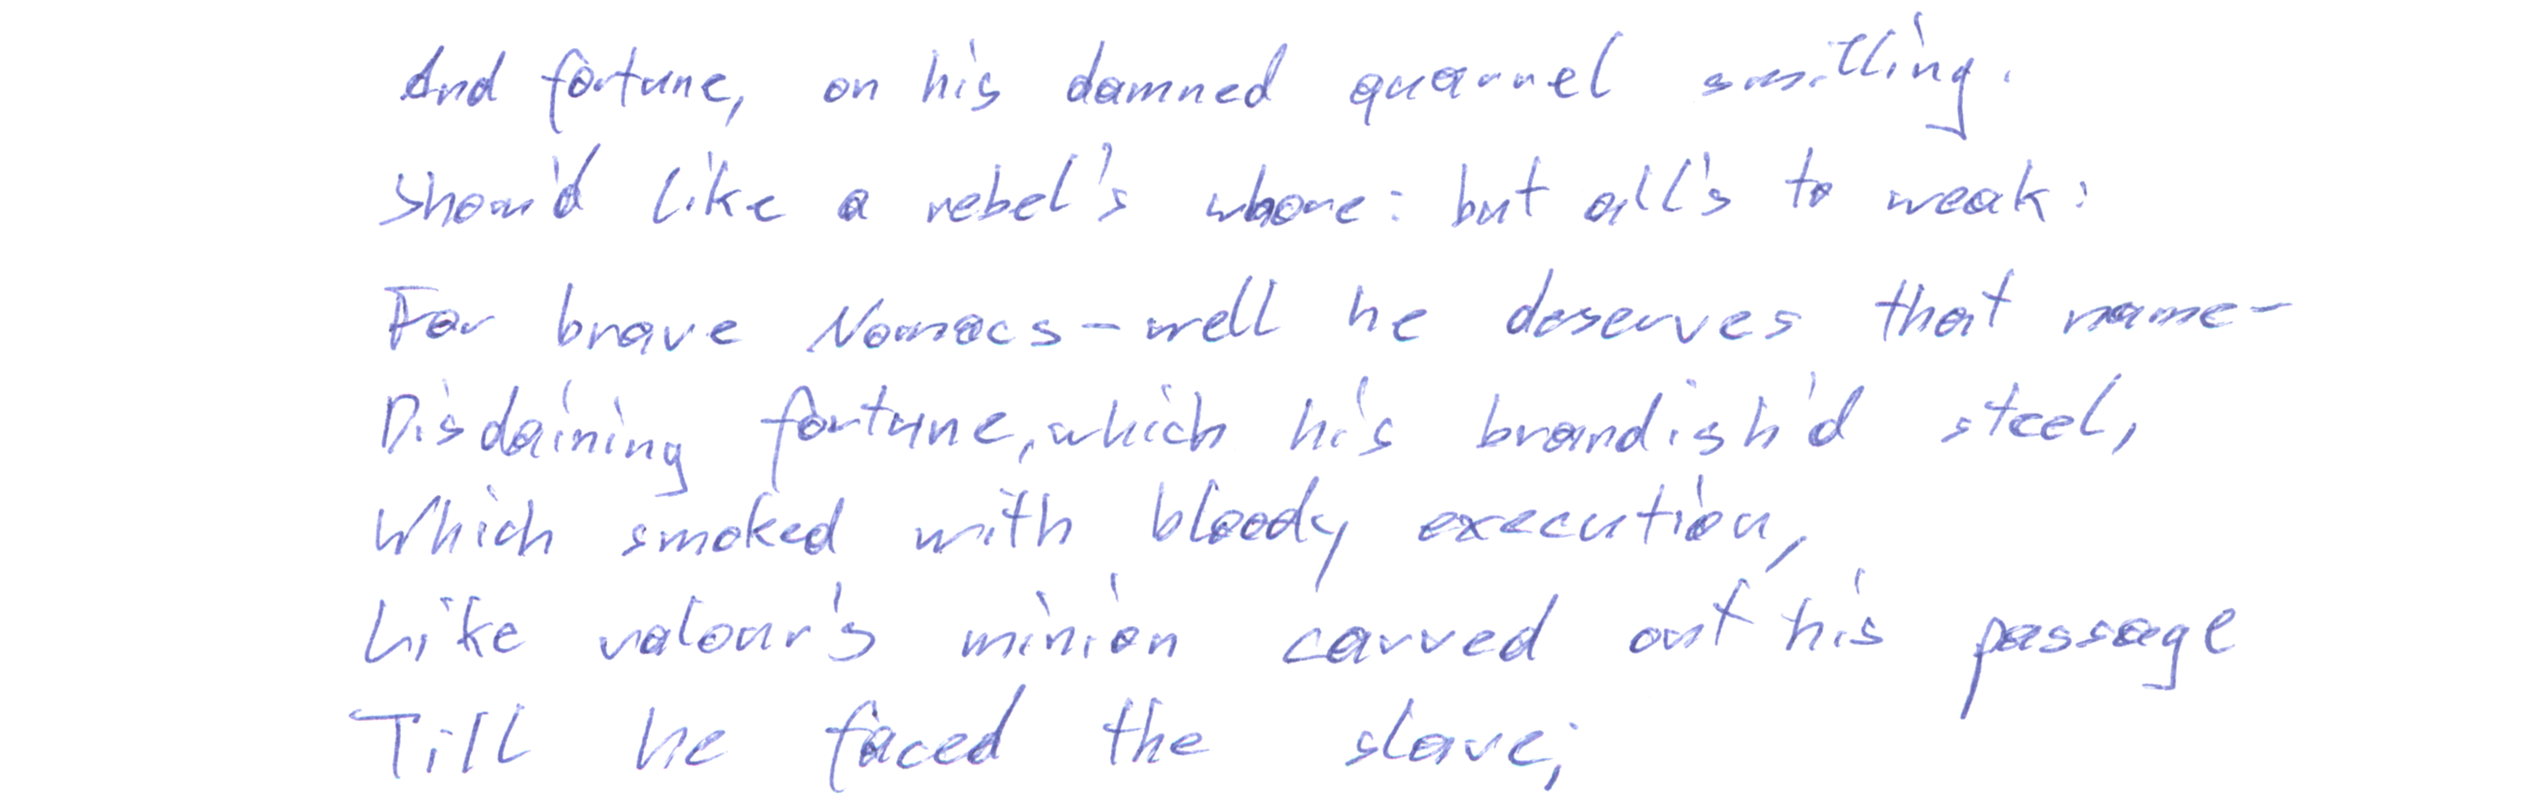 And fortune, on his damned quarrel smitling.
Show'd like a rebel's whore: but all's to weak:
For brave Nomacs-well he deserves that name-
Disdaining fortune, which his brandish'd steel,
Which smoked with bloody execution,
Like valour's minion carved out his passage
Till he faced the slave;